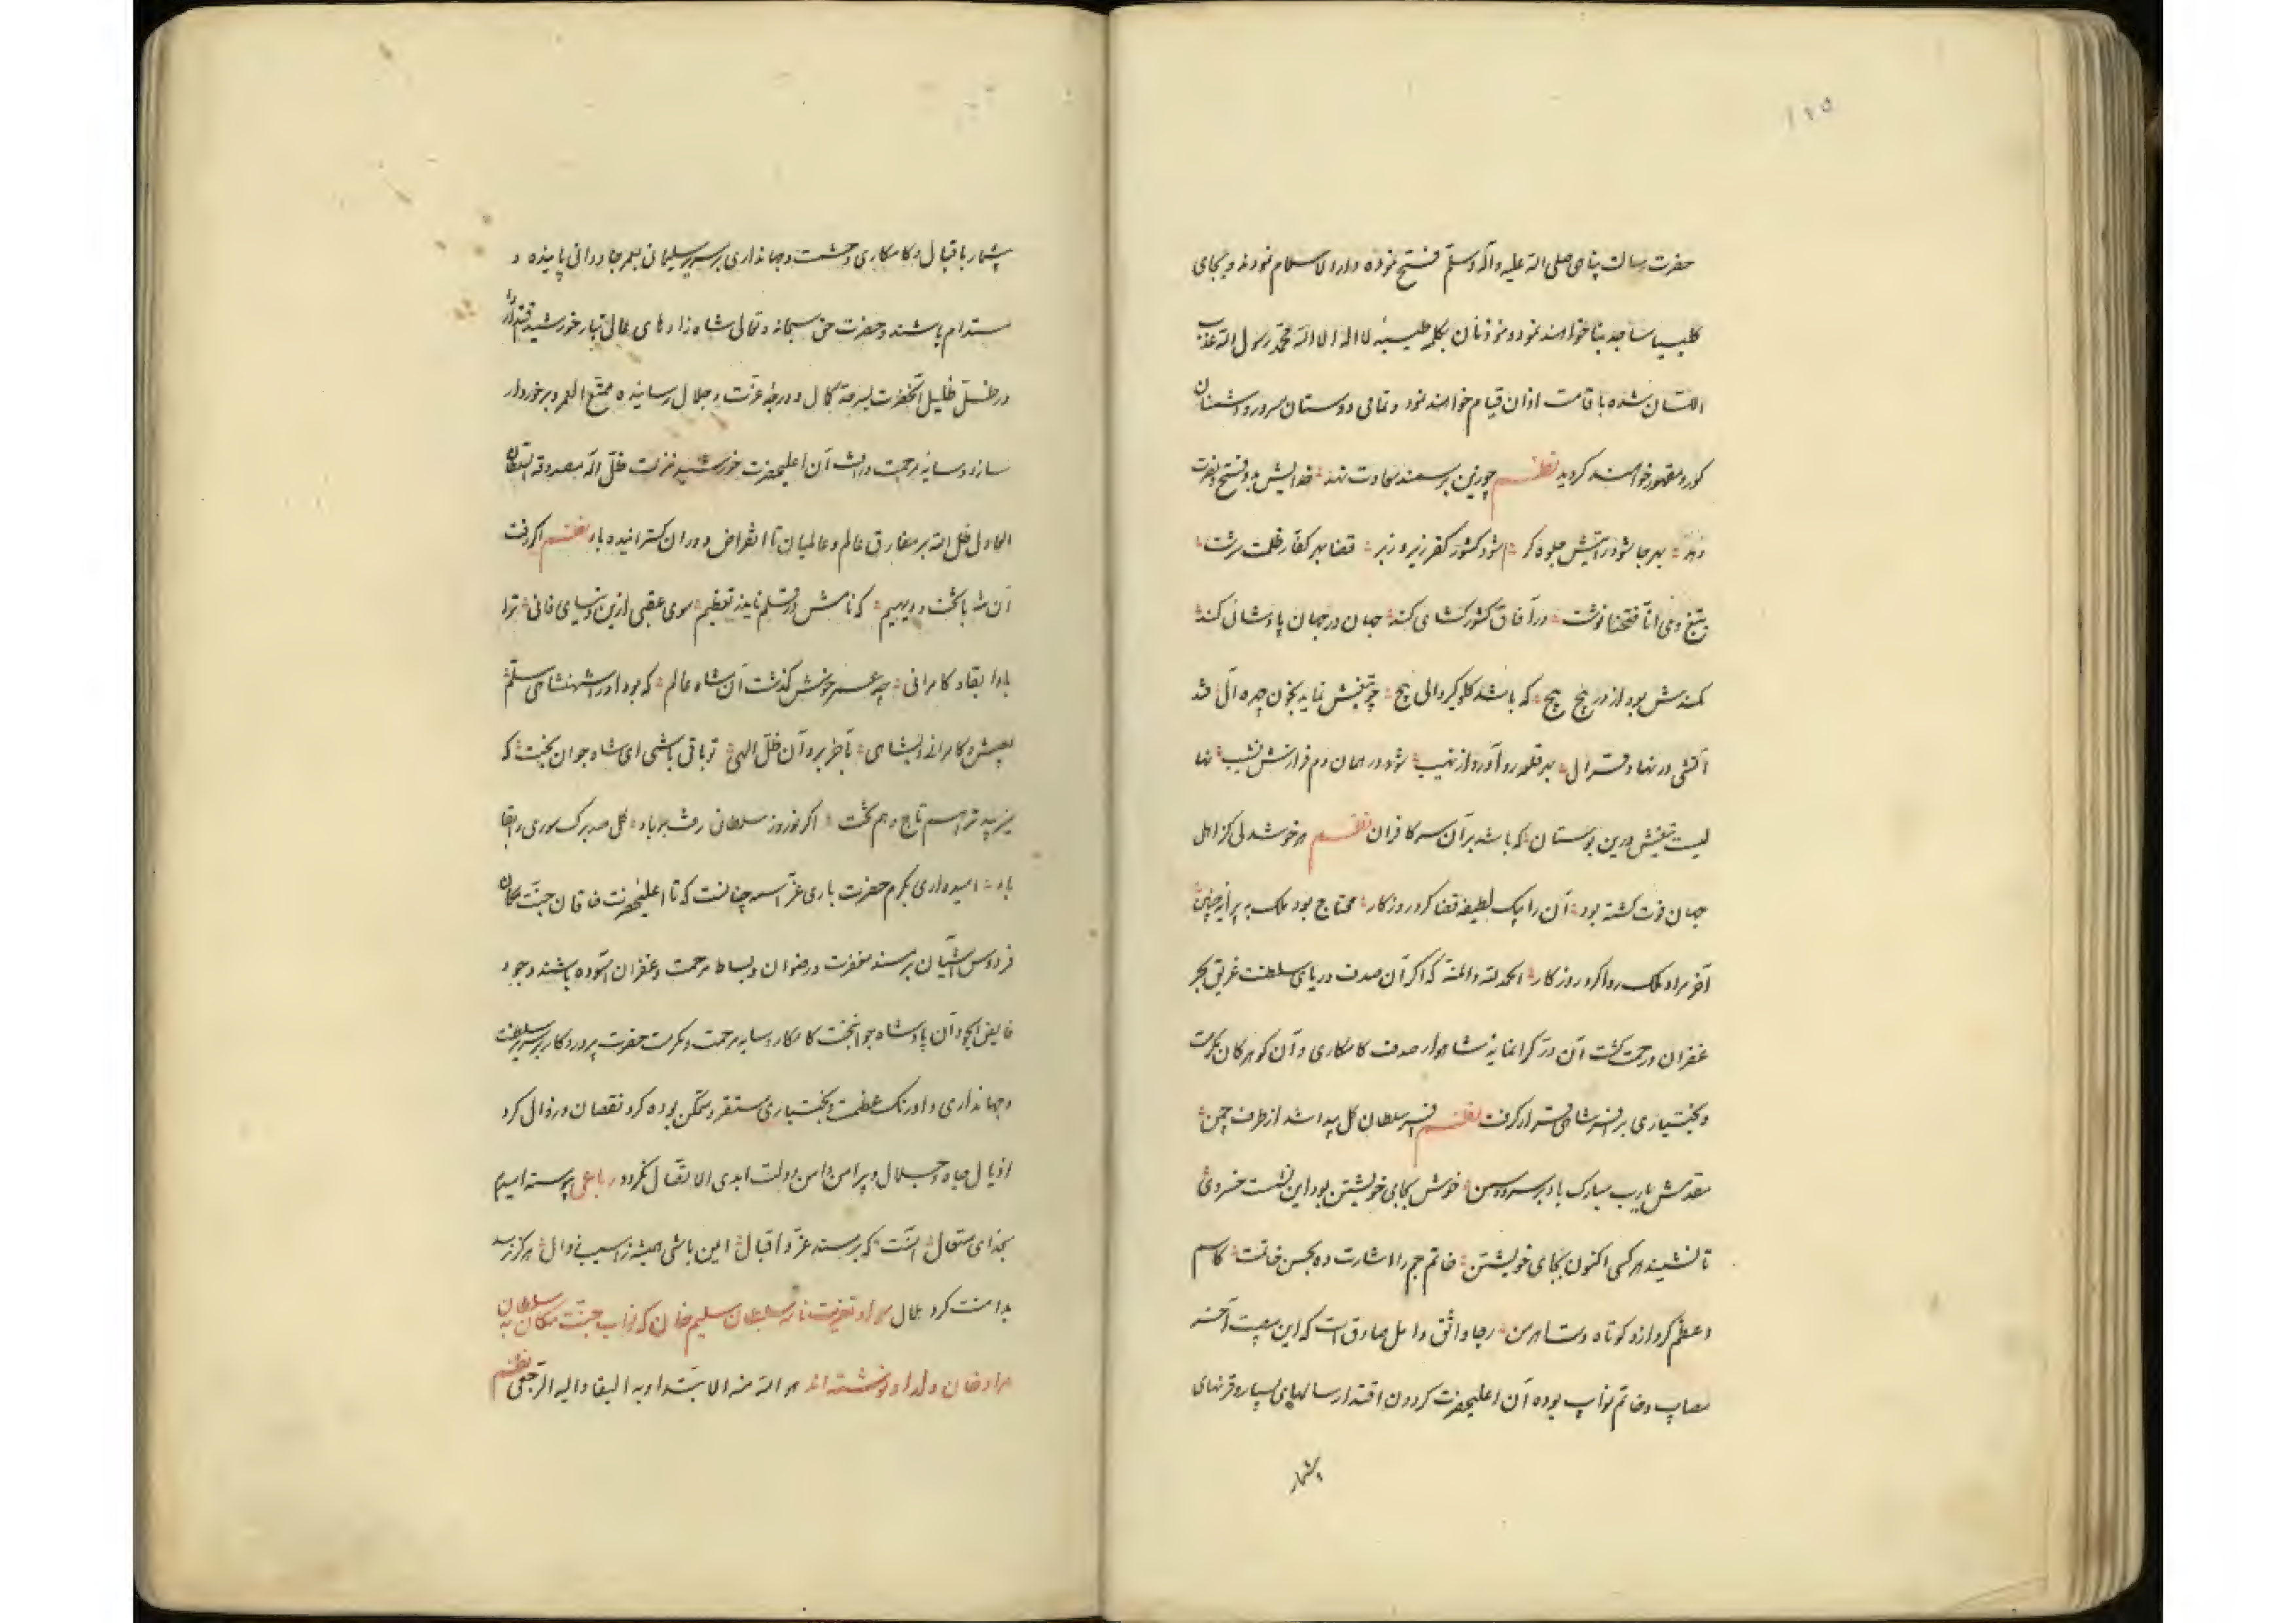 ١٢٥
حضرت رسالت پناهی صلی الله علیه وآله وسلم فتح نموده ودار الاسلام نمودند و بجای
کلیسیا مساجد بنا خواهند نمود و موذنان بکلمه طیبه لا اله الا الله محمد رسول الله عذب
اللسان شده باقامت اذان قیام خواهند نمود و تمامی دوستان مسرور و دشمنان
کور و مقهور خواهند کردید نظم چو زین بر سمند سعادت نهد خدایش بدو فتح و نصرت
دهد بهر جا شود رایتش جلوه کر شود کشور کفر زیر و زبر قضا بهر کفار ظلمت سرشت
بتیغ وی انا فتحنا نوشت در آفاق کشورکشای کند جهان در جهان پادشاهی کند
کمندش بود از در پیچ پیچ که باشد کلوکیر والی پیچ چو تیغش نماید بخون چهره آل فتد
آتشی در نهاد قرال بهر قلعه رو آورد از نهیب شود در همان دم فرازش نشیب نها
لیست تیغش درین بوستان که باشد برآن سر کافران نظم هر خوشدلی کز اهل
جهان فوت کشته بود آن را بیک لطیفه قضا کرد روزکار محتاج بود ملک به پیرایه چنین
آخر مراد ملک روا کرد روزکار الحمد لله والمنه که اکر آن صدف دریای سلطنت غریق بحر
غفران و رحمت کشت آن در کرانمایه شاهوار صدف کامکاری و آن کوهر کان مکرمت
و بختیاری بر افسر شاهی قرار کرفت نظم افسر سلطان کل پیدا شد از طرف چمن
مقدمش یارب مبارک باد بر سرو و سمن خوش بجای خویشتن بود این نشست خسروی
تا نشیند هر کسی اکنون بجای خویشتن خاتم جم را اشارت ده بحسن خاتمت کاسم
اعظم کرد ازو کوتاه دست اهرمن رجا واثق و امل صادق است که این مصیبت آخر
مصایب و خاتم نوایب بوده آن اعلیحضرت کردون اقتدار سالهای بسیار و قرنهای
بیشمار
بیشمار باقبال و کامکاری و حشمت و جهانداری بر سریر سلیمانی بعمر جاودانی پاینده و
مستدام باشند و حضرت حق سبحانه و تعالی شاه زادهای عالی تبار خورشید اقتدار را
در ظل ظلیل آنحضرت بمرتبه کمال و درجه عزت و جلال رسانیده ممتع العمر و برخوردار
سازد و سایه مرحمت و رافت آن اعلیحضرت خورشید منزلت ظل اله مصدوقه السلطان
العادل ظل الله بر مفارق عالم و عالمیان تا انقراض دوران کسترانیده باد نظم اکر رفت
آن شه با تخت و دیهیم که نامش در قلم ناید ز تعظیم سوی عقبی ازین دنیای فانی ترا
بادا بقاء کامرانی چه عمر خوش کذشت آن شاه عالم که بود او را شهنشاهی مسلم
بعیش و کامرانی و بشاهی بآخر برد آن ظل الهی تو باقی باشی ای شاه جوان بخت که
میزیبد ترا هم تاج و هم تخت اکر نوروز سلطانی رفت بر باد کل صد برک سوری را بقا
باد امیدواری بکرم حضرت باری عز اسمه چنانست که تا اعلیحضرت خاقان جنت مکان
فردوس آشیان بر مسند مغفرت و رضوان و بساط مرحمت و غفران آسوده باشند وجود
فایض الجود آن پادشاه جوانبخت کامکار بسایه مرحمت و مکرمت حضرت پروردکار بر سریر سلطنت
و جهانداری و اورنک عظمت و بختیاری مستقر و متمکن بوده کرد نقصان و زوال کرد
اذیال جاه و جلال و پیرامن دامن دولت ابدی الاتصال نکردد رباعی پیوسته امیدم
بخدای متعال آنست که بر مسند عز و اقبال ایمن باشی همیشه ز آسیب زوال هرکز نرسد
بدامنت کرد ملال سواد تعزیت نامه سلطان سلیم خان که نواب جنت مکان به سلطان
مراد خان ولد او نوشته اند هو الله منه الابتدا وبه البقا والیه الرجعی نظم